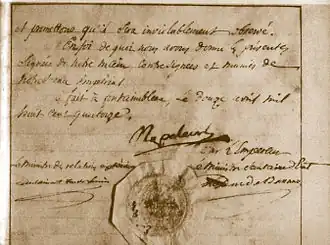 et promettons qu'il sera inviolablement observé.
En foi de quoi nous avons donné les présentes
signées de notre main contresignées et munies de
notre sceau impérial
fait à fontainebleau le douze avril mil
huit cent quatorze.
Napoleon
Par l'Empereur
Le Ministre des relations extérieures
Le Ministre Secrétaire d'Etat